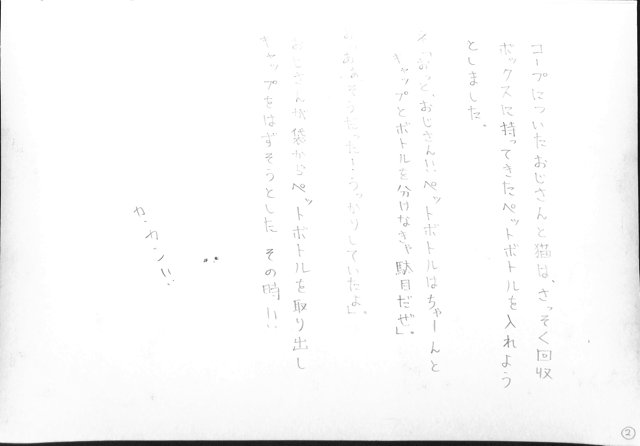 コープについたおじさんと猫は、さっそく回収
ボックスに持ってきたペットボトルを入れよう
としました。
おっと、おじさん!!ペットボトルはちゃーんと
キャップとボトルを分けなきゃ駄目だぜ」
あぁそうだった!うっかりしていたよ」。
おじさんが袋からペットボトルを取り出し
キャップをはずそうとした その時!!
カ・カン!!
②